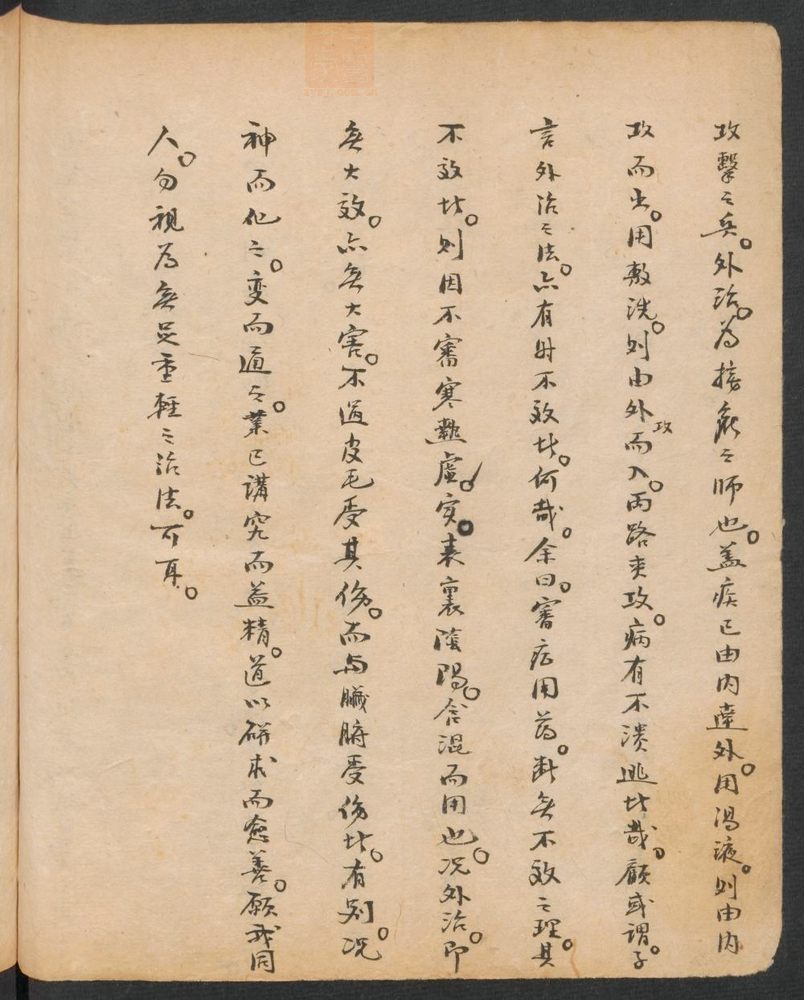 攻擊之兵。外治。為接應之師也。蓋疾已由內達外。用湯液。則由內
攻而出。用敷洗。則由外攻而入。両路夾攻。病有不潰逃者哉。顧或謂。子
言外治之法。亦有时不效者。何哉。余曰。審症用药。断無不效之理。其
不效者。則因不審寒熱虛。实。表裏陰陽。含混而用也。况外治。即
無大效。亦無大害。不過皮毛受其傷。而与臟腑受傷者。有别。况
神而化之。变而通之。業已講究而益精。道以研求而愈善。願我同
人。勿視為無足重輕之治法。可耳。